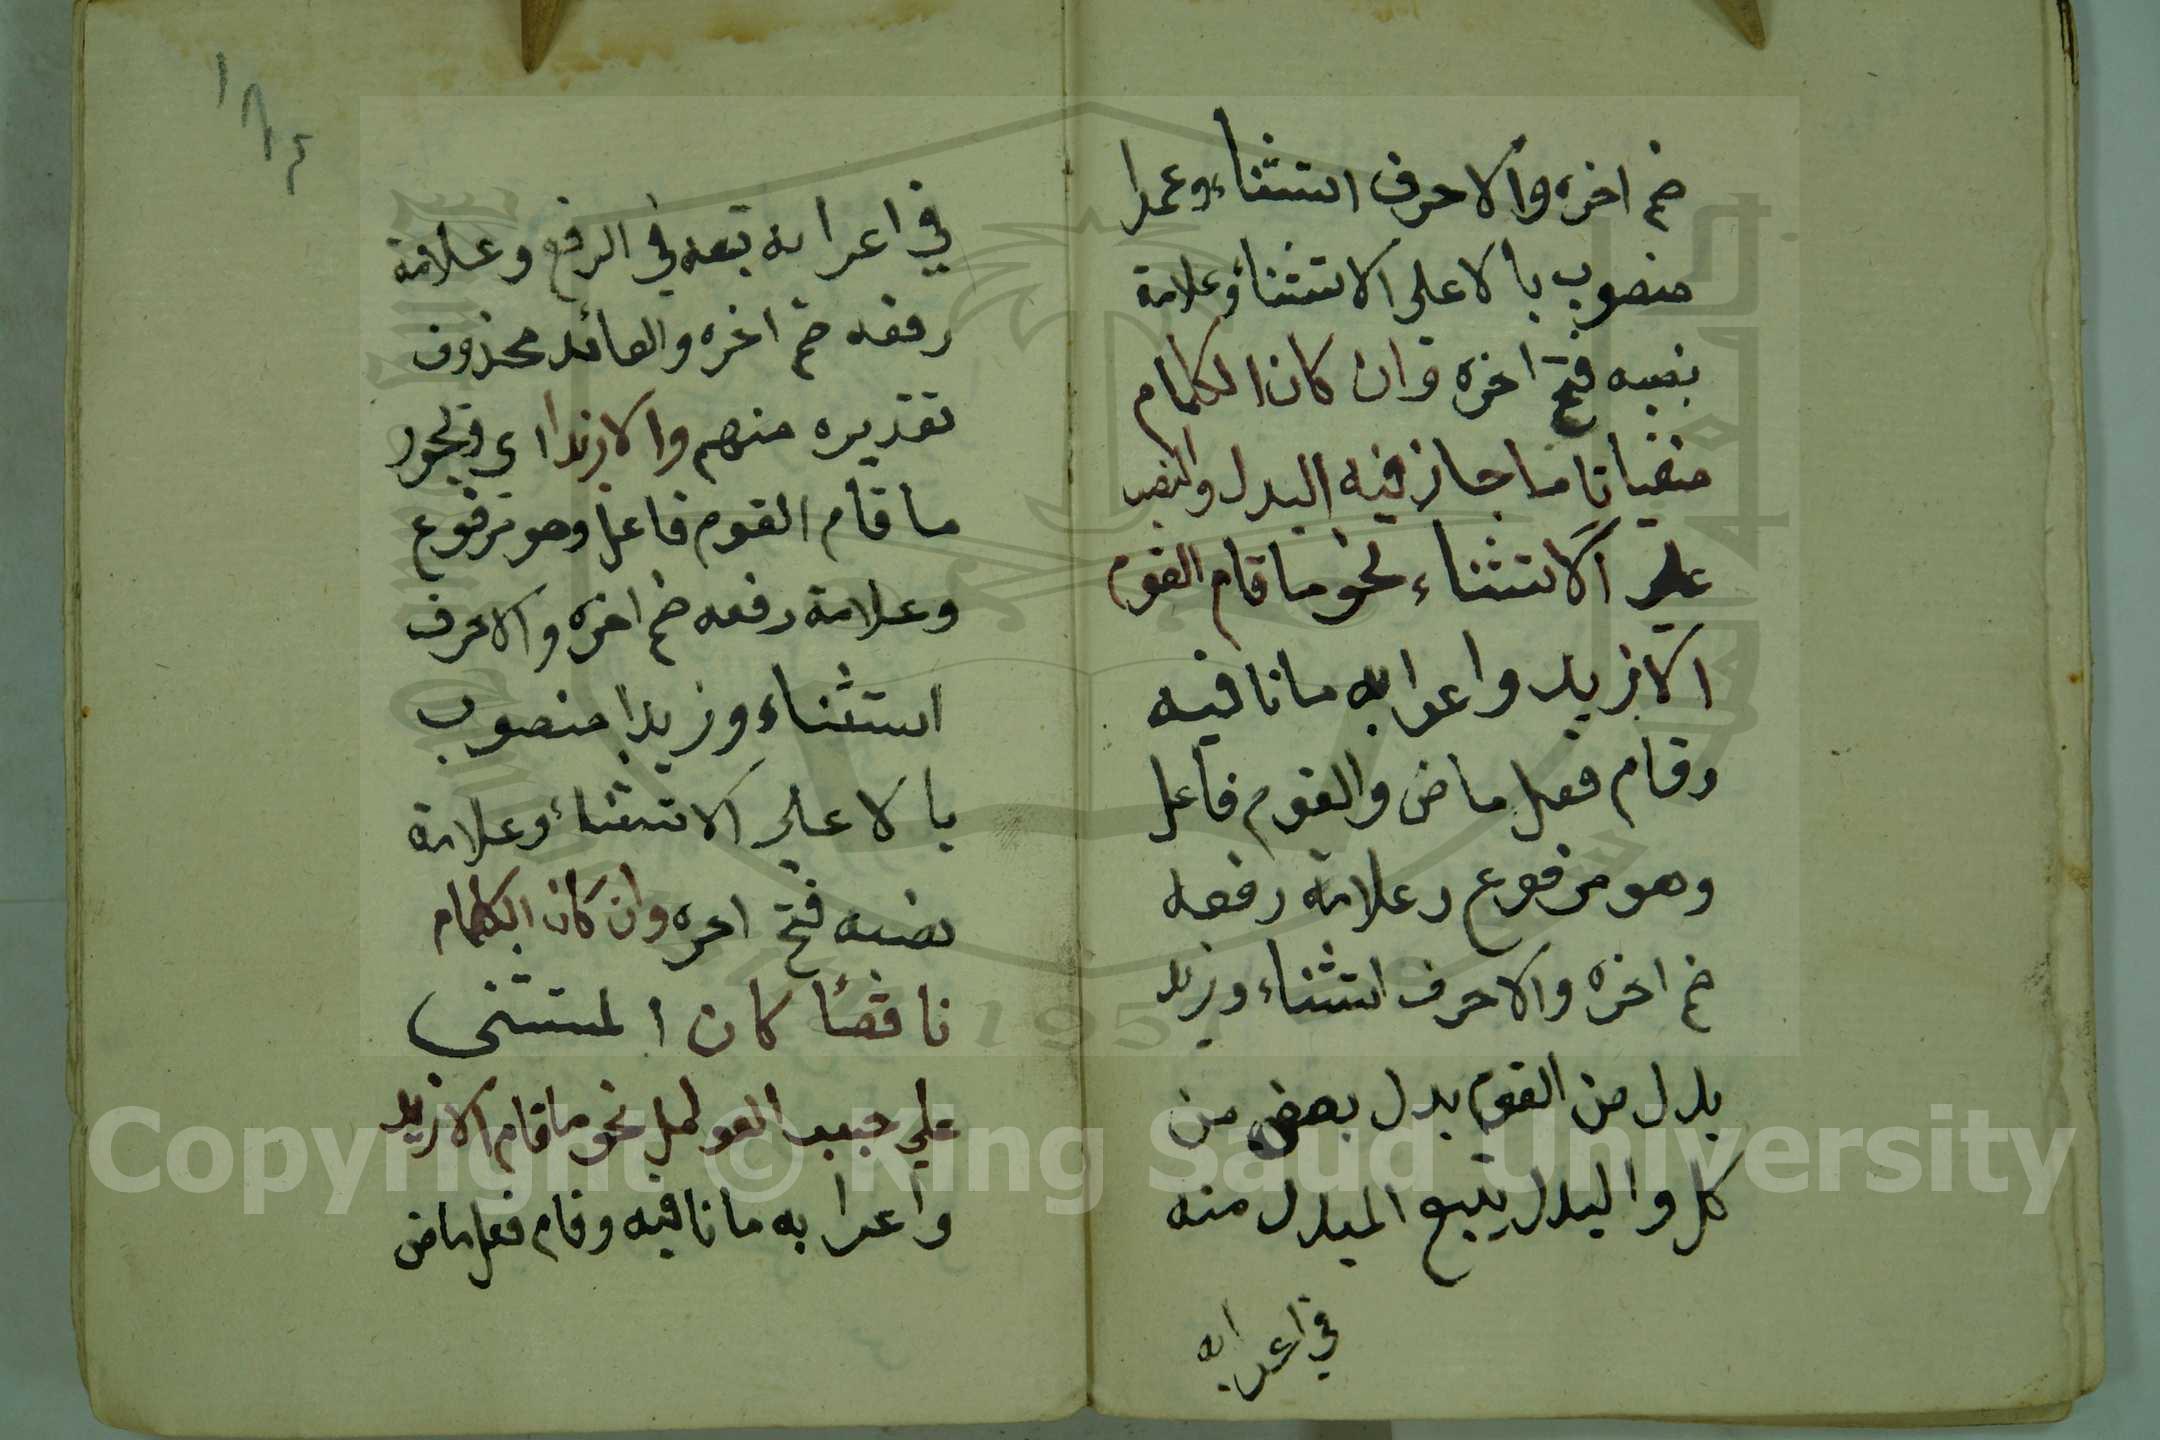 ضم اخره والا حرف استثناء وعمرا
منصوب بالا على الاستثناء وعلامة
نصبه فتح اخره وان كان الكلام
منفيا تاما جاز فيه البدل والنصب
على الاستثناء نحو ما قام القوم
الا زيد واعرابه ما نافيه
وقام فعل ماض والقوم فاعل
وهو مرفوع وعلامة رفعه
ضم اخره والا حرف استثناء وزيد
بدل من القوم بدل بعض من
كل والبدل يتبع المبدل منه
في اعرابه
في اعرابه تبعه في الرفع وعلامة
رفعه ضم اخره والعائد محذوف
تقديره منهم والا زيدا اي ونحو
ما قام القوم فاعل وهو مرفوع
وعلامة رفعه ضم اخره والا حرف
استثناء وزيدا منصوب
بالا على الاستثناء وعلامة
نصبه فتح اخره وان كان الكلام
ناقصا كان المستثنى
على حسب العوامل نحو ما قام الا زيد
واعرابه ما نافيه وقام فعل ماض
Copyright © King Saud University
1957